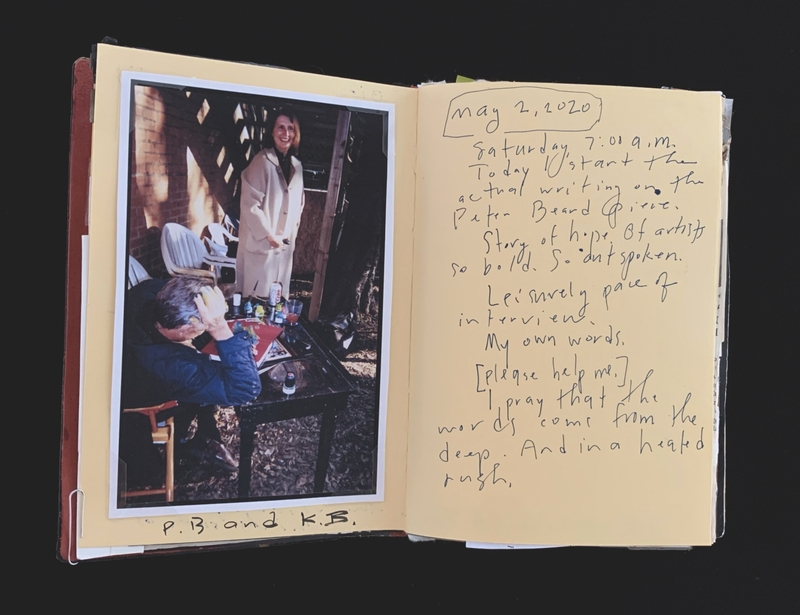 P.B and K.B.
May 2, 2020
Saturday, 7:00 a.m.
Today I start the
actual writing on the
Peter Beard piece.
Story of hope. Of artists
so bold. So outspoken.
Leisurely pace of
interview.
My own words.
[please help me.]
I pray that the
words come from the
deep. And in a heated
rush.